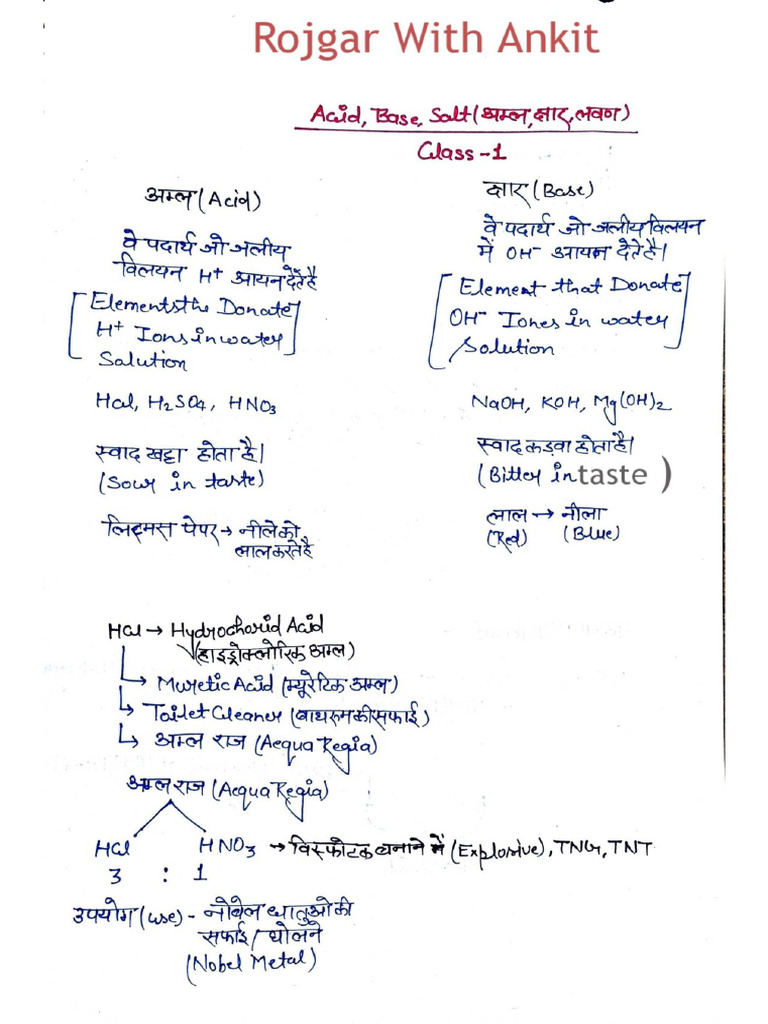 Rojgar With Ankit
Acid, Base, Salt (अम्ल, क्षार, लवण)
Class-1
अम्ल (Acid)
वे पदार्थ जो जलीय
विलयन H+ आयन देते है
[Elements the Donate
H+ Ions in water
Salution]
Hcl, H2SO4, HNO3
स्वाद खट्टा होता है।
(Sour in taste)
लिटमस पेपर → नीले को
लाल करते है
क्षार (Base)
वे पदार्थ जो जलीय विलयन
में OH- आयन देते है।
[Element that Donate
OH- Iones in water
Solution]
NaOH, KOH, Mg(OH)2
स्वाद कड़वा होता है।
(Bitter in taste )
लाल → नीला
(Red) (Blue)
Hcl → Hydrochorid Acid
(हाइड्रोक्लोरिक अम्ल)
↳ Muretic Acid (म्यूरेटिक अम्ल)
↳ Toilet Cleaner (बाथरूम की सफाई)
↳ अम्ल राज (Aequa Regia)
अम्ल राज (Aequa Regia)
Hcl HNO3 → विस्फोटक बनाने में (Explosive), TNG, TNT
3 : 1
उपयोग (use) - नोबेल धातुओ की
सफाई / घोलने
(Nobel Metal)